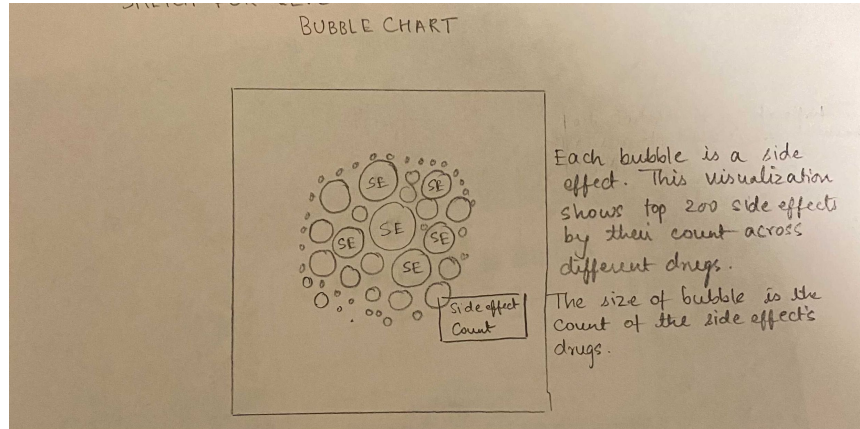 BUBBLE CHART
SE
SE
SE
SE
SE
SE
Side effect
Count
Each bubble is a side
effect. This visualization
shows top 200 side effects
by their count across
different drugs.
The size of bubble is the
count of the side effect's
drugs.